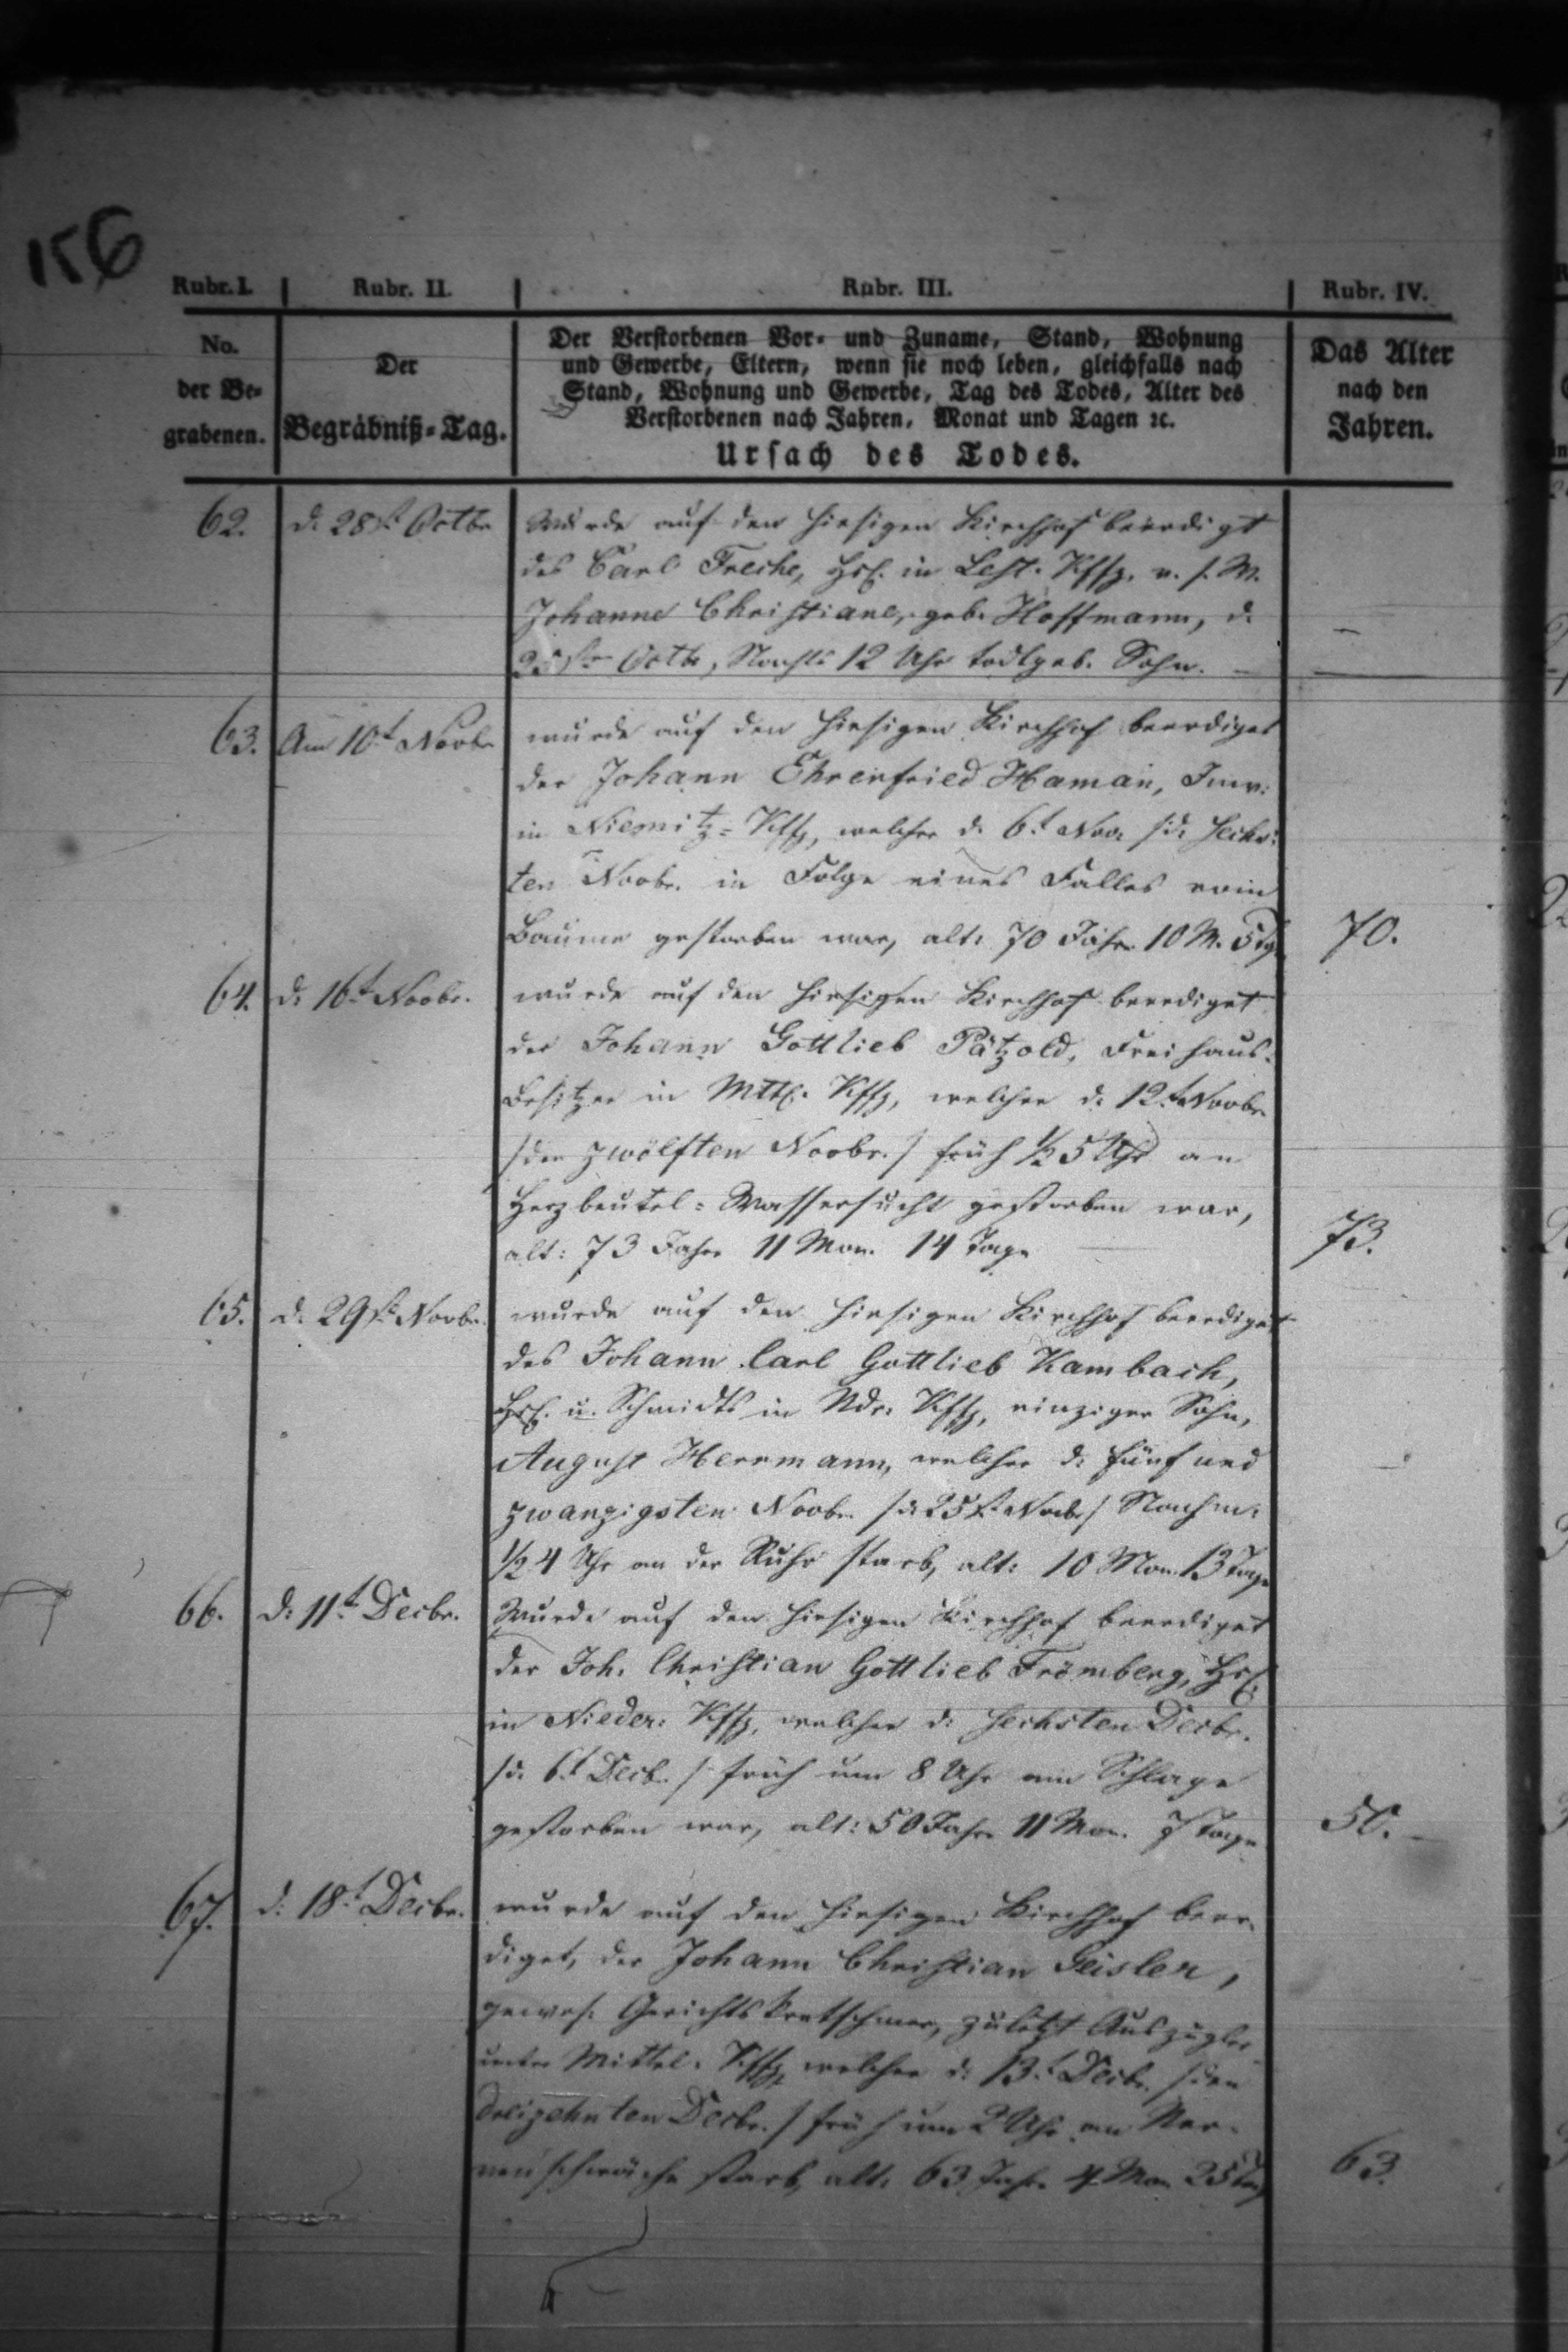 156
Rubr. I. Rubr. II. Rubr. III. Rubr. IV.
No.
der Be-
grabenen.
Der
Begräbniß-Tag.
Der Verstorbenen Vor- und Zuname, Stand, Wohnung
und Gewerbe, Eltern, wenn sie noch leben, gleichfalls nach
Stand, Wohnung und Gewerbe, Tag des Todes, Alter des
Verstorbenen nach Jahren, Monat und Tagen ꝛc.
Ursach des Todes.
Das Alter
nach den
Jahren.
62. d. 28st Octbr Wurde auf den hiesigen Kirchhof beerdigt
des Carl Freche, Hsl. in Kffg. u. s. W.
Johanne Christiane, geb. Hoffmann, d.
25st Octbr, Nachts 12 Uhr todtgeb. Sohn. —
63. Am 10t Novbr wurde auf den hiesigen Kirchhof beerdiget
der Johann Ehrenfried Haman, Inw:
in Niemitz-Kffg, welcher d. 6t Nov. /:d: sechs:
ten Novbr. in Folge eines Falles vom
Baume gestorben war, alt: 70 Jahr 10 M. 5 tg. 70.
64. d. 16t Novbr. wurde auf den hiesigen Kirchhof beerdiget
der Johann Gottlieb Pätzold, Freihaus-
besitzer in Mttl. Kffg, welcher d. 12t Novbr
/den zwölften Novbr./ früh ½ 5 Uhr an
Herzbeutel-Wassersucht gestorben war,
alt: 73 Jahr 11 Mon. 14 Tage 73.
65. d. 29st Novbr. wurde auf den hiesigen Kirchhof beerdiget
des Johann Carl Gottlieb Kambach,
Hsl. u. Schmidts in Ndr. Kffg, einziger Sohn,
August Herrmann, welcher d. fünf und
zwanzigsten Novbr. /d. 25st Novbr/ Nachm:
½ 4 Uhr an der Ruhr starb, alt: 10 Mon. 13 Tage
66. d: 11t Decbr. Wurde auf den hiesigen Kirchhof beerdiget
der Joh. Christian Gottlieb Frömberg, Hsl.
in Nieder: Kffg, welcher d: sechsten Decbr.
/d. 6t Decb./ früh um 8 Uhr am Schlage
gestorben war, alt: 50 Jahr 11 Mon. 7 Tage 50.
67. d: 18t Decbr. wurde auf den hiesigen Kirchhof beer-
diget, der Johann Christian Geisler,
gewes. Gerichtskretschmer, zuletzt Auszügler
Mittel. Kffg, welcher d: 13t Decbr. /den
dreizehnten Decbr./ früh um 2 Uhr an Ner-
venschwäche starb, alt: 63 Jahr 4 Mon 25 Tag 63.